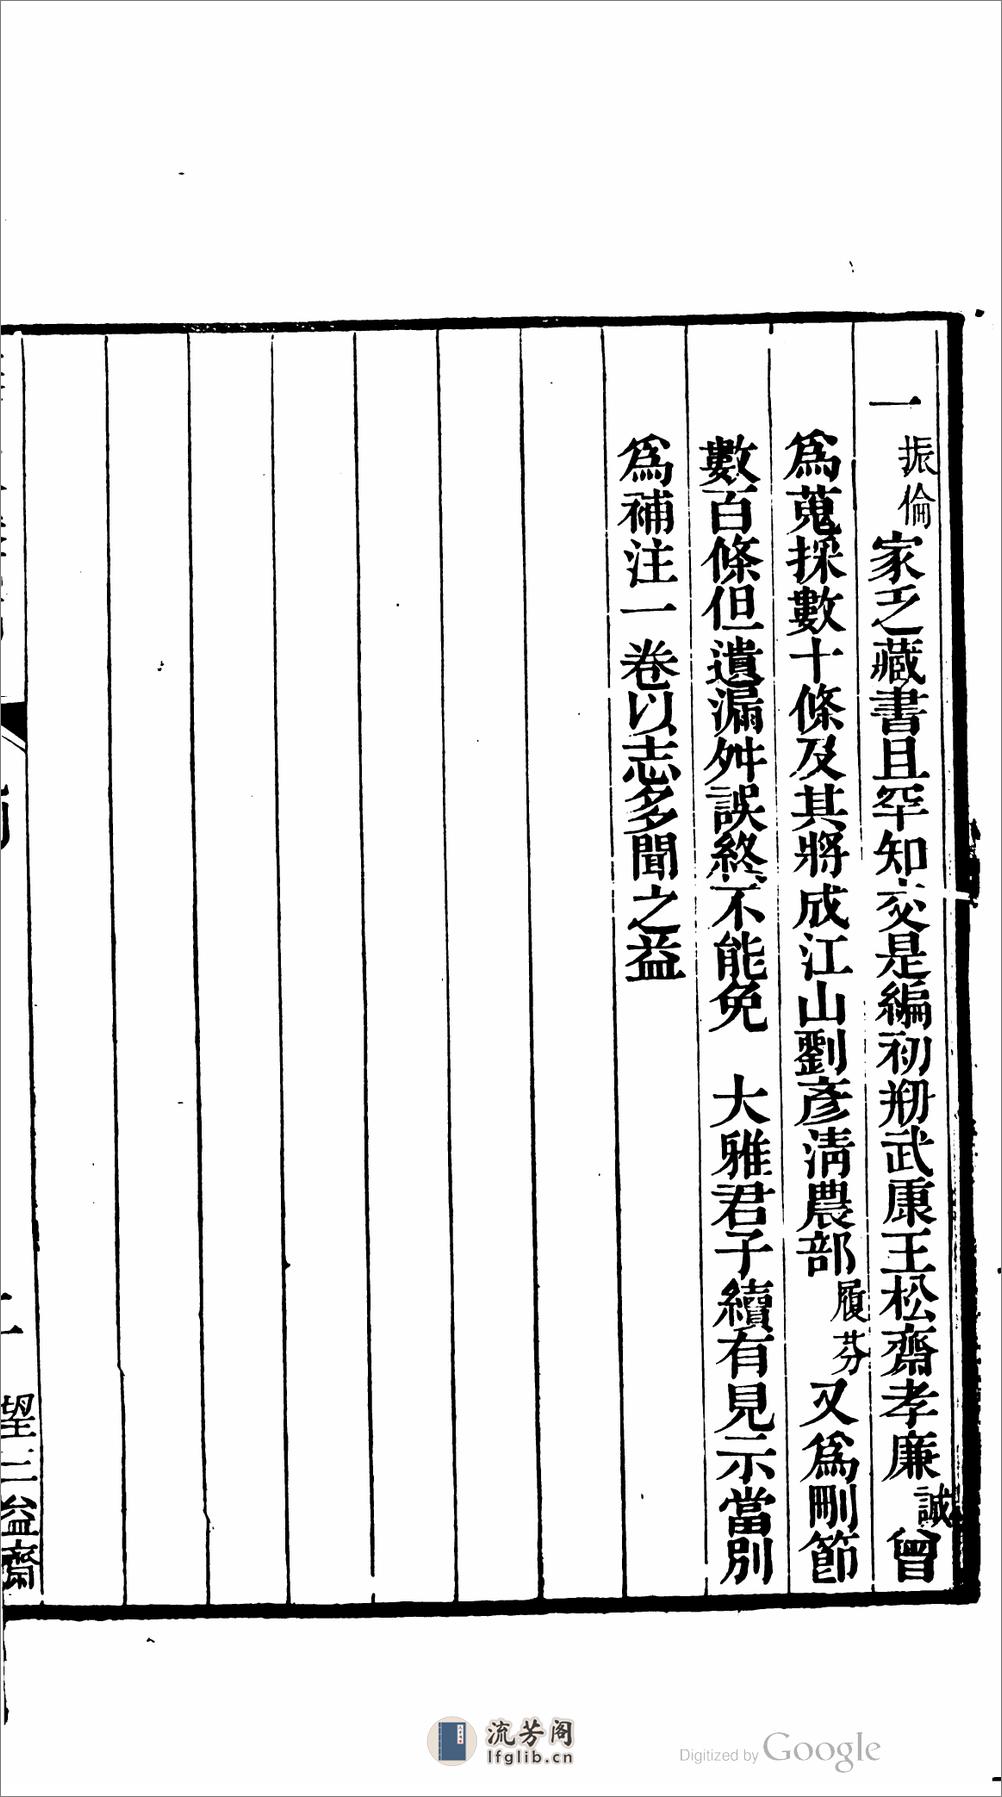 一振倫家乏藏書且罕知交是編初剏武康王松齋孝廉誠曾
爲蒐採數十條及其將成江山劉彥清農部履芬又爲刪節
數百條但遺漏舛誤終不能免　大雅君子續有見示當別
爲補注一卷以志多聞之益
望三益齋
流芳阁
lfglib.cn
Digitized by Google